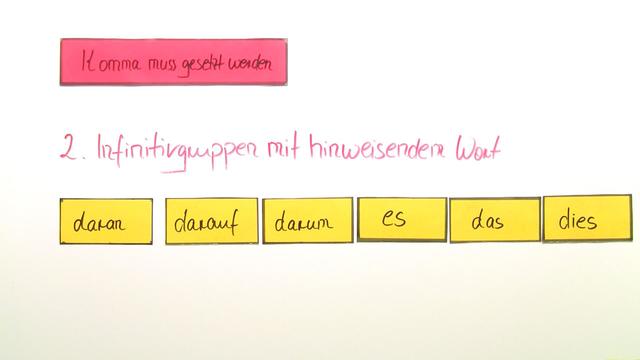 Komma muss gesetzt werden
2. Infinitivgruppen mit hinweisendem Wort
daran darauf darum es das dies